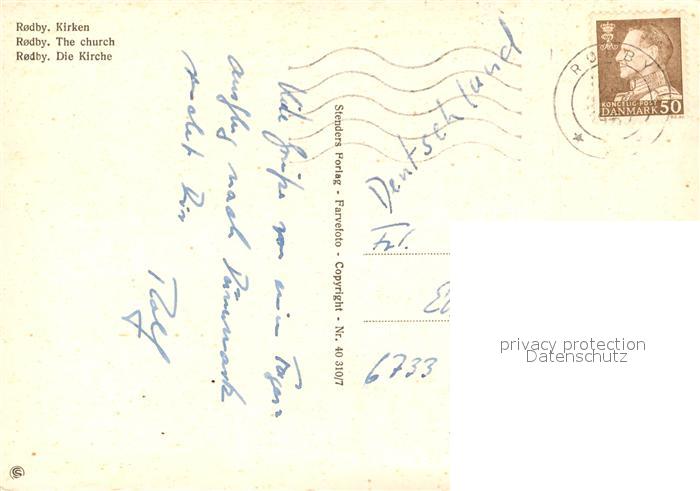 Rødby. Kirken
Rødby. The church
Rødby. Die Kirche
RØDBY
KONGELIG POST
DANMARK 50
Deutschland
Stenders Forlag - Farvefoto - Copyright - Nr. 40 310/7
Viele Grüße von ein Tages
ausflug nach Dänemark
sendet Dir
Rolf
Frl.
6733
privacy protection
Datenschutz